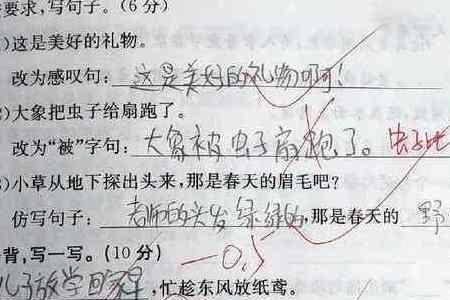 要求,写句子。(6分)
)这是美好的礼物。
改为感叹句: 这是美好的礼物啊!
)大象把虫子给扇跑了。
改为“被”字句: 大象被虫子扇跑了。 虫子比
)小草从地下探出头来,那是春天的眉毛吧?
仿写句子: 老师的头发绿绿的,那是春天的 野
背,写一写。(10分) -0.5
儿子放学回家早,忙趁东风放纸鸢。